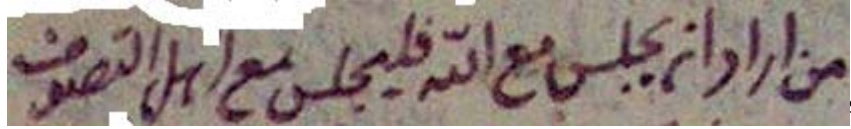 من اراد ان يجلس مع الله فليجلس مع اهل التصوف